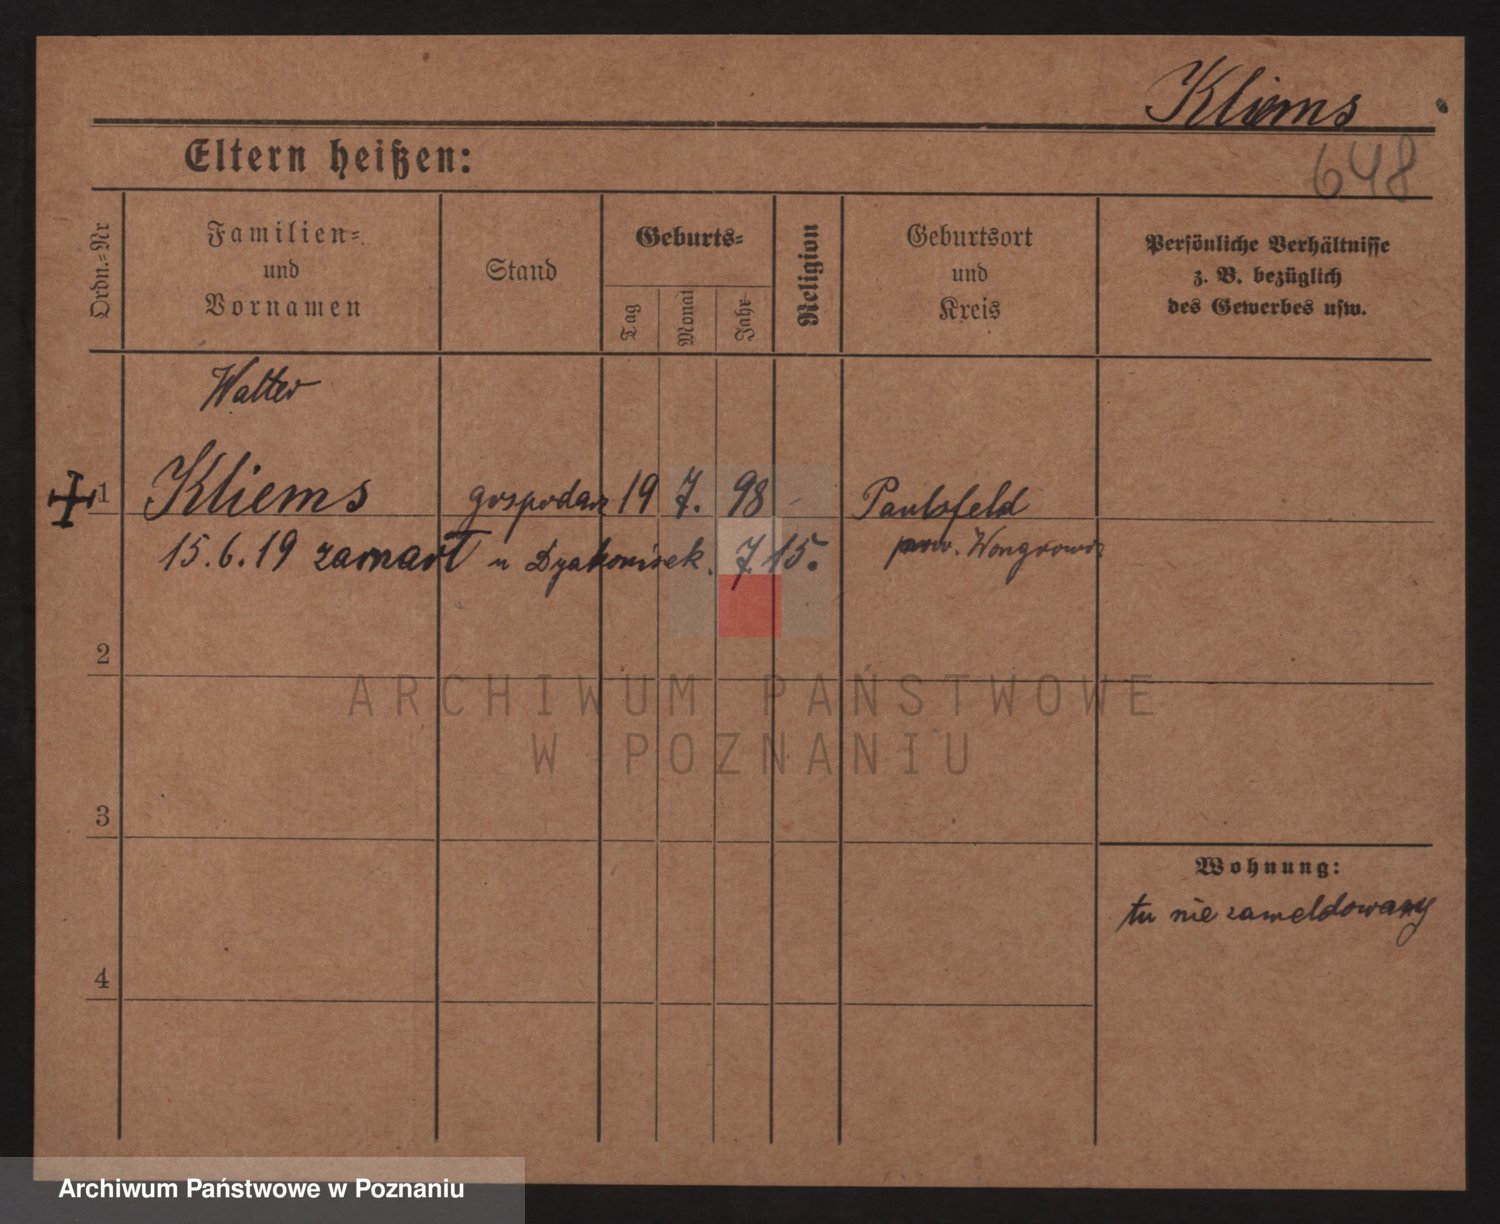 Kliems
648
Eltern heißen:
Ordn.=Nr
Familien=
und
Vornamen
Stand
Geburts=
Tag
Monat
Jahr
Religion
Geburtsort
und
Kreis
Persönliche Verhältnisse
z. B. bezüglich
des Gewerbes usw.
Walter
1 Kliems gospodarz 19 7. 98 Paulsfeld
15.6.19 zamarł u Dyakonisek. 7 15. pow. Wongrowiz
2
ARCHIWUM PAŃSTWOWE
W POZNANIU
3
Wohnung:
tu nie zameldowany
4
Archiwum Państwowe w Poznaniu